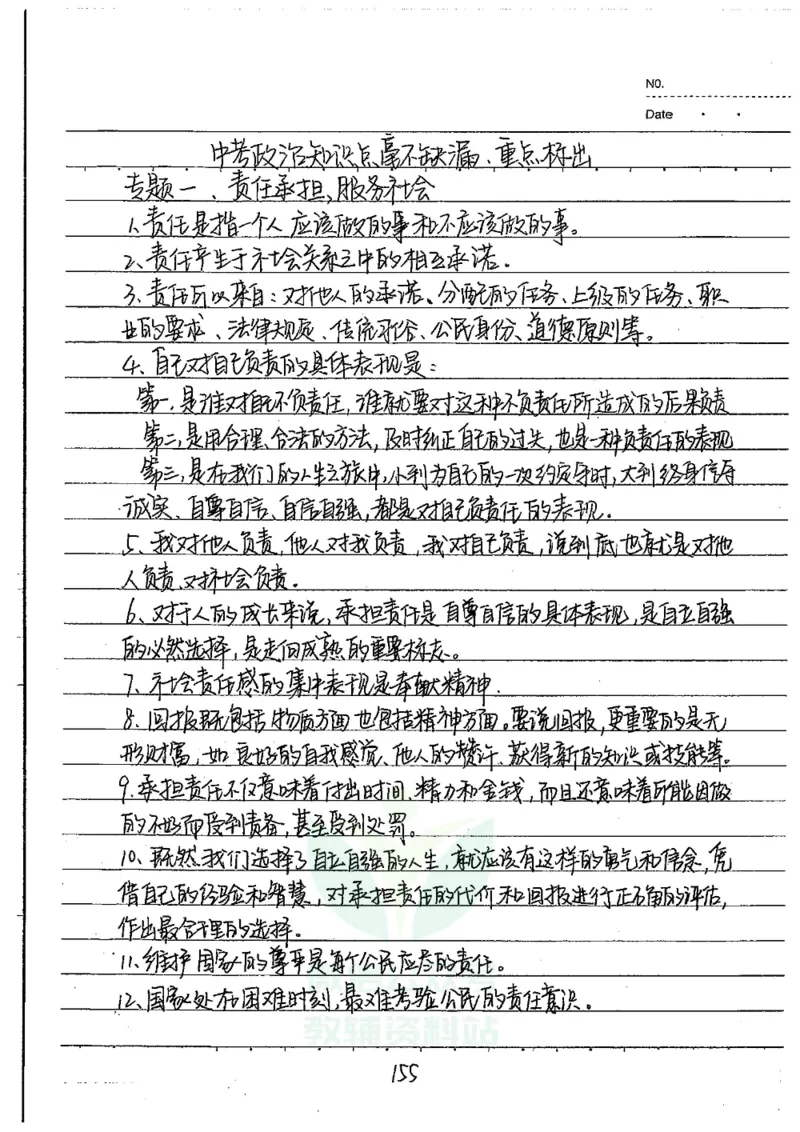 NO.
Date
中考政治知识点毫不缺漏、重点标出
专题一、责任承担,服务社会
1、责任是指一个人应该做的事和不应该做的事。
2、责任产生于社会关系之中的相互承诺.
3、责任可以来自:对他人的承诺、分配的任务、上级的任务、职
业的要求、法律规定、传统习俗、公民身份、道德原则等。
4、自己对自己负责的具体表现是:
第一,是谁对自己不负责任,谁就要对这种不负责任所造成的后果负责
第二,是用合理、合法的方法,及时纠正自己的过失,也是一种负责任的表现
第三,是在我们的人生之旅中,小到为自己的一次约定守时,大到终身信守
诚实、自尊自信、自信自强,都是对自己负责任的表现.
5、我对他人负责,他人对我负责,我对自己负责,说到底也就是对他
人负责、对社会负责。
6、对于人的成长来说,承担责任是自尊自信的具体表现,是自立自强
的必然选择,是走向成熟的重要标志。
7、社会责任感的集中表现是奉献精神.
8、回报既包括物质方面也包括精神方面。要说回报,更重要的是无
形财富,如良好的自我感觉、他人的赞许、获得新的知识或技能等。
9、承担责任不仅意味着付出时间、精力和金钱,而且还意味着可能因做
的不好而受到责备,甚至受到处罚。
10、既然我们选择了自立自强的人生,就应该有这样的勇气和信念,凭
借自己的经验和智慧,对承担责任的代价和回报进行正确的评估,
作出最合理的选择。
11、维护国家的尊严是每个公民应尽的责任。
12、国家处在困难时刻,最难考验公民的责任意识。
教辅资料站
155